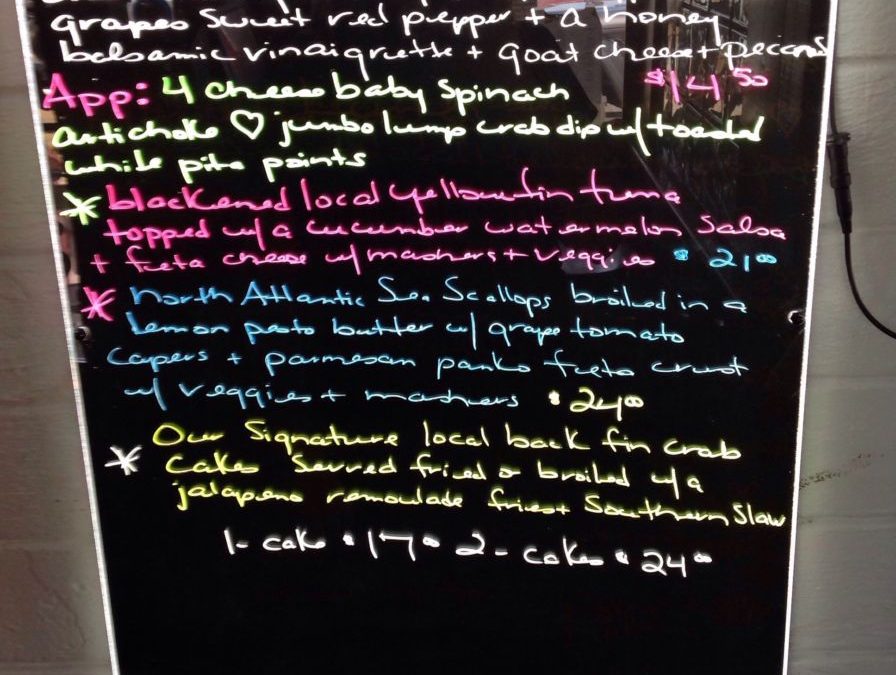 grapes sweet red pepper + a honey
balsamic vinaigrette + goat cheese + pecans
App: 4 cheese baby spinach $14 50
artichoke ♡ jumbo lump crab dip w/ toasted
white pita points
* blackened local yellowfin tuna
topped w/ a cucumber watermelon salsa
+ feta cheese w/ mashers + veggies $ 21 00
* North Atlantic Sea Scallops broiled in a
lemon pesto butter w/ grape tomato
capers + parmesan panko feta crust
w/ veggies + mashers $ 24 00
Our Signature local back fin crab
* cakes served fried or broiled w/ a
jalapeno remoulade fries + Southern Slaw
1- cake $ 17 00 2 - cakes $ 24 00